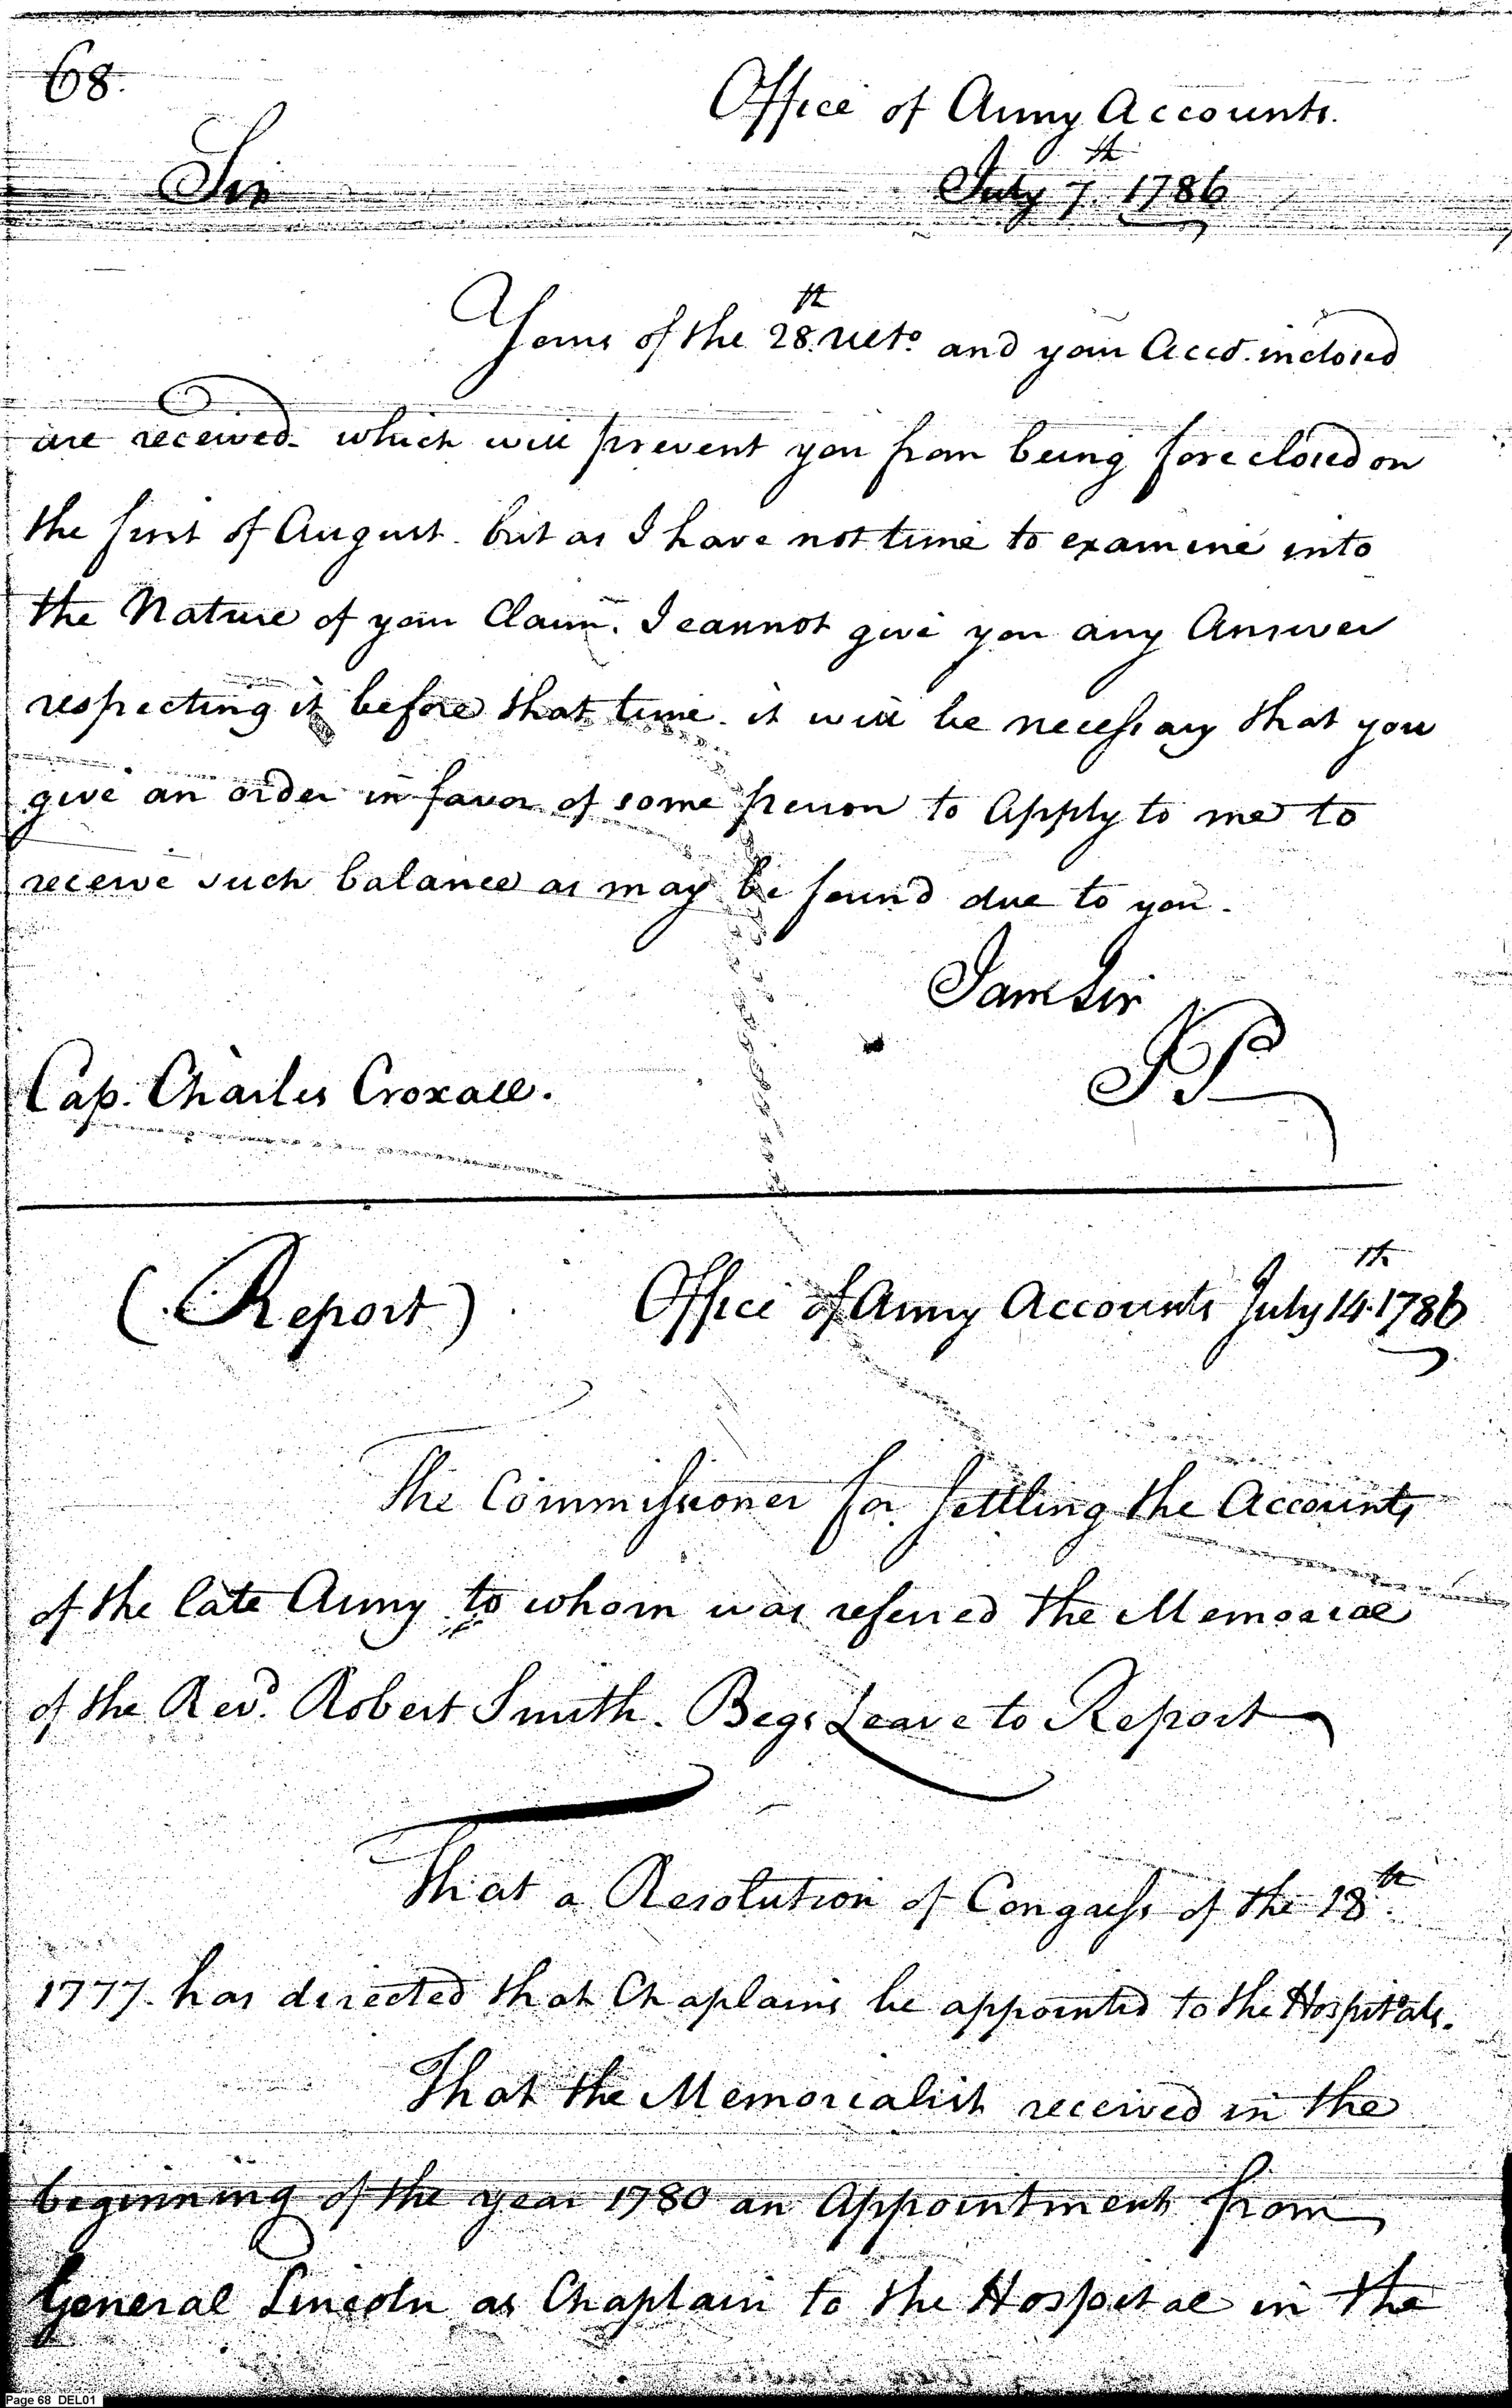 68.
Office of Army Accounts.
Sir
July 7th. 1786
Yours of the 28th. ulto. and your Accot. inclosed
are received. which will prevent you from being foreclosed on
the first of August. but as I have not time to examine into
the Nature of your Claim. I cannot give you any Answer
respecting it before that time. it will be necessary that you
give an order in favor of some person to Apply to me to
receive such balance as may be found due to you.
I am Sir
JP
Cap. Charles Croxall.
(Report) Office of Army Accounts July 14th. 1786
The Commissioner for settling the Accounts
of the late Army to whom was referred the Memorial
of the Revd. Robert Smith. Begs Leave to Report
That a Resolution of Congress of the 18th.
1777. has directed that Chaplains be appointed to the Hospitals.
That the Memorialist received in the
beginning of the year 1780 an Appointment from
General Lincoln as Chaplain to the Hospital in the
Page 68 DEL01